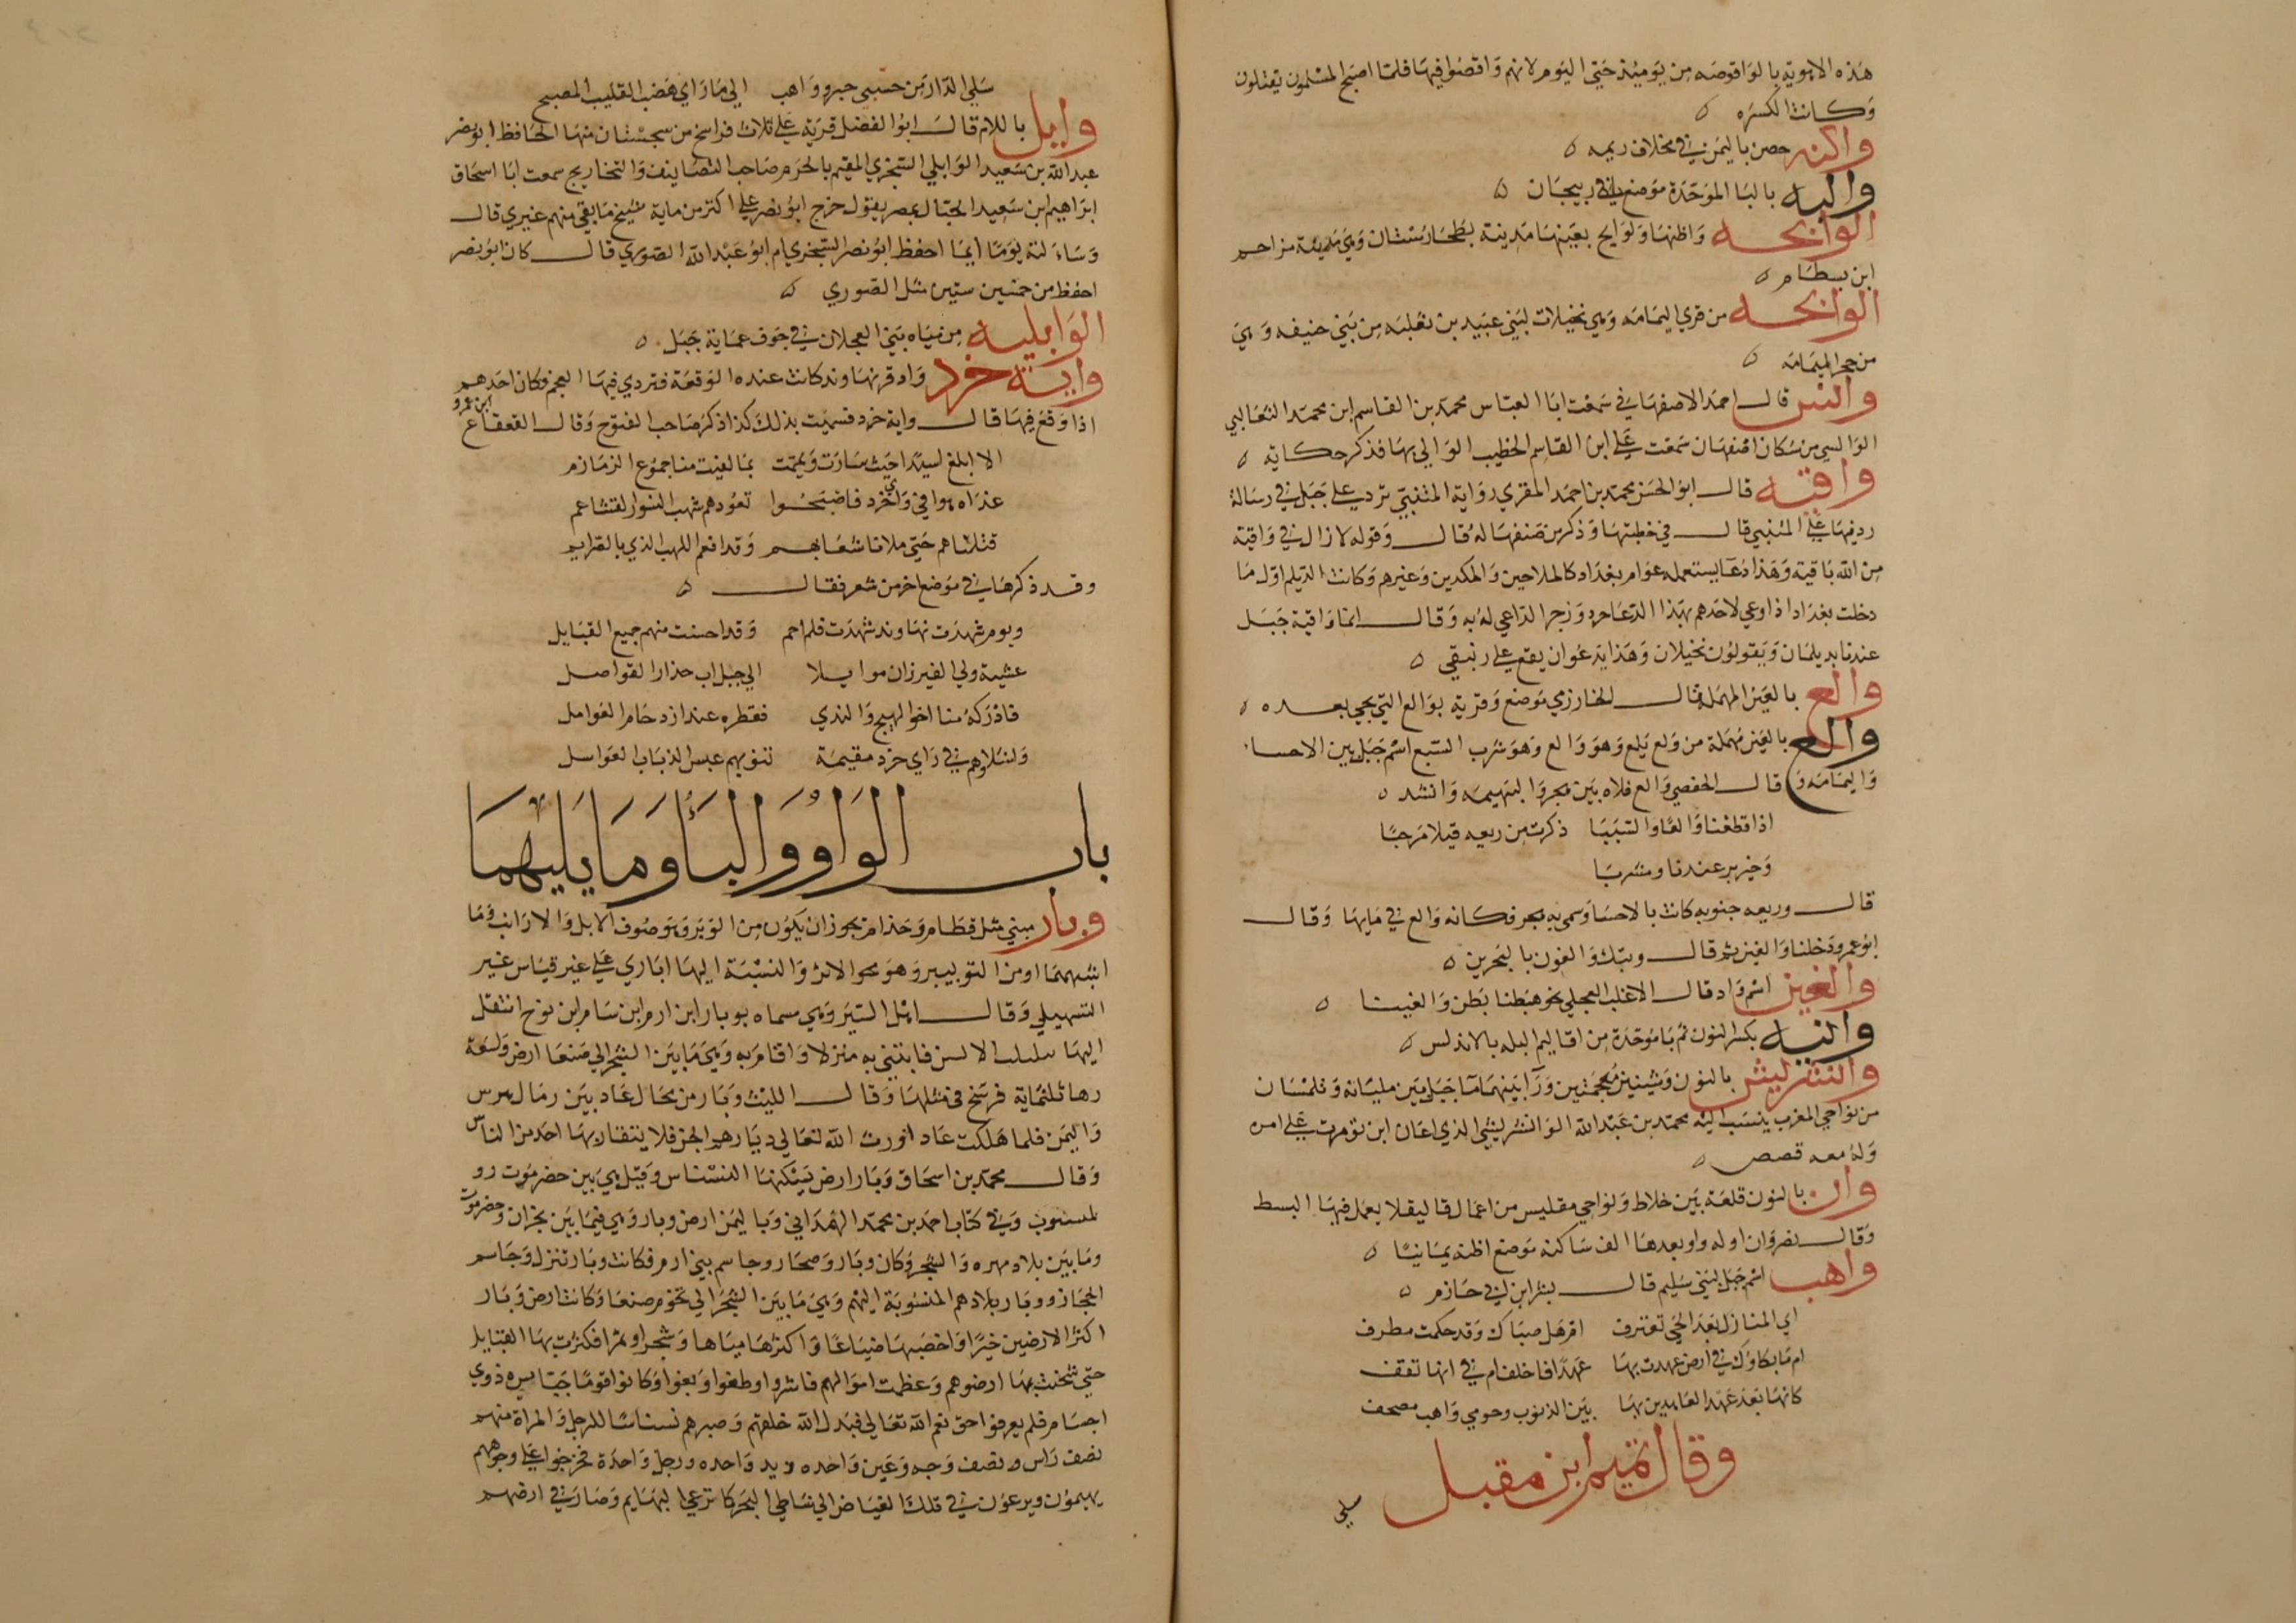 هذه الاهويه بالواقوصه من يومئذ حتى اليوم لانهم واقصوا فيها فلما اصبح المسلمون يقتلون
وكانت الكسره
والته حصن باليمن في مخلاف ريمه
والبه بالبا الموحدة موضع باذربيجان
الوالجه واظنها ولوالج بعينها مدينة بطخارستان وهي مدينة مزاحم
ابن بسطام
الوالجه من قري اليمامه وهي نخيلات لبني عبيد بن ثعلبه من بني حنيفه وهي
من حجر اليمامه
والس قال احمد الاصفهاني سمعت ابا العباس محمد بن القاسم ابن محمد الثعالبي
الوالسي من سكان اصفهان سمعت علي ابن القاسم الخطيب الوالي بها فذكر حكاية
واقيه قال ابو الحسن محمد بن احمد المقري رواية المتنبي يرد علي جبل في رسالة
رد فيها علي المتنبي قال في خطبتها وذكر من صنفها له قال وقوله لا زال في واقية
من الله باقية وهذا دعا يستعمله عوام بغداد كالملاحين والمكدين وغيرهم وكانت الديلم اول ما
دخلت بغداد اذا دعي لاحدهم بهذا الدعا حرد وزجر الداعي له به وقال انما واقية جبل
عندنا بديلمان ويقولون نخيلان وهذا يدعو ان يقع علي رنبقي
والع بالعين المهملة قال الخارزمي موضع وقرية بوالع التي يجي بعده
والع بالعين مهملة من ولع يلع وهو والع وهو شرب السبع اسم جبل بين الاحساء
واليمامه و قال الحفصي والع فلاه بين هجر والبهيمه وانشد
اذا قطعنا والعا والسبسبا ذكرت من ريعه قيلا مرحبا
وخير بر عندنا ومشربا
قال وريعه جنوبه كانت بالاحسا وسمي به هجر فكانه والع في مايها وقال
ابو عمرو دخلنا والغين ثم قال وبتك والغون بالبحرين
والغين اسم واد قال الاغلب العجلي نحو هبطنا بطن والغينا
وانيه بكسر النون ثم با موحدة من اقاليم لبله بالاندلس
وانشريش بالنون وشينين معجمتين ورا بينهما ما جبل بين مليانه وتلمسان
من نواحي المغرب ينسب اليه محمد بن عبد الله الوانشريشي الذي اعان ابن تومرت علي امره
وله معه قصص
وان بالنون قلعة بين خلاط ونواحي تفليس من اعمال قاليقلا يعمل فيها البسط
وقال نصر وان اوله واو بعدها الف ساكنه موضع اظنه يمانيا
واهب اسم جبل لبني سليم قال بشر ابن ابي خازم
اي المنازل بعد الحي تعترف ام هل صباك وقد حكمت مطرف
ام ما بكاوك في ارض عهدت بها عهدا فاخلف ام في ايها تقف
كانها بعد عهد العاهدين بها بين الذنوب وحزمي واهب صحف
وقال تميم ابن مقبل
سلي
سلي الدار من حسبي حبر وواهب الي ما راي هضب القليب المصبح
وايل باللام قال ابو الفضل قرية علي ثلاث فراسخ من سجستان منها الحافظ ابو نصر
عبد الله بن سعيد الوايلي السجزي المقيم بالحرم صاحب التصانيف والتخاريج سمعت ابا اسحاق
ابراهيم ابن سعيد الحبال بمصر يقول خرج ابو نصر علي اكثر من ماية شيخ ما بقي منهم غيري قال
وساءلته يوما ايما احفظ ابو نصر السجزي ام ابو عبد الله الصوري قال كان ابو نصر
احفظ من خمسين ستين مثل الصوري
الوابليه من مياه بني العجلان في جوف عماية جبل
واية خرد واد قرنهاوند كانت عنده الوقعة فتردي فيها العجم وكان احدهم
اذا وقع فيها قال وايه خرد فسميت بذلك كذا ذكر صاحب الفتوح وقال القعقاع ابن عمرو
الا ابلغ اسيدا حيث سارت ويممت بما لقيت منا جموع الزمازم
غداة هووا في واي خرد فاصبحوا تعودهم شهب النسور القشاعم
قتلناهم حتي ملانا شعابهم وقد افعم اللهب الذي بالصرايم
وقد ذكرها في موضع اخر من شعر فقال
ويوم شهدت نهاوند شهدت فلم احم وقد احسنت منهم جميع القبايل
عشية ولي الفيرزان موايلا الي جبل اب حذار القواصل
فادركه منا اخو الهيج والندي فقطره عند ازدحام العوامل
واشلاوهم في واي خرد مقيمة تنوبهم عبس الذياب العواسل
باب الواو والباء وما يليهما
وبار مبني مثل قطام وحذام يجوز ان يكون من الوبر وهو صوف الابل والارانب وما
اشبههما او من التوبير وهو محو الاثر والنسبة اليها اباري علي غير قياس عن
السهيلي وقال اهل السير وهي مسماه بوبار ابن ارم ابن سام ابن نوح انتقل
اليها الالسن فابتني به منزلا واقام به وهي ما بين الشحر الي صنعا ارض واسعة
زها ثلثماية فرسخ في مثلها وقال الليث وبار من محال عاد بين رمال يبرين
واليمن فلما هلكت عاد اورث الله تعالي ديارهم الجن فلا يتقاربها احد من الناس
وقال محمد بن اسحاق وبار ارض يسكنها النسناس وقيل هي بين حضرموت
وفي كتاب احمد بن محمد الهمذاني وباليمن ارض وبار وهي فيما بين نجران وحضرموت
وما بين بلاد مهره والشحر وكان وبار وصحار وجاسم بني ارم فكانت وبار تنزل وجاسم
الحجاز ووبار بلادهم المنسوبة اليهم وهي ما بين الشحر الي تخوم صنعا وكانت ارض وبار
اكثر الارضين خيرا واخصبها ضياعا واكثرها مياها وشجرا وثمرا فكثرت بها القبايل
حتي شحنت بها ارضوهم وعظمت اموالهم فاشروا وطغوا وبغوا وكانوا قوما جبابره ذوي
اجسام فلم يعرفوا حق نعم الله تعالي فبدل الله خلقهم وصيرهم نسناسا للرجل والمراة منهم
نصف راس ونصف وجه وعين واحده ويد واحده ورجل واحدة فخرجوا علي وجوههم
يهيمون ويرعون في تلك الغياض الي شاطي البحر كما ترعي البهايم وصار في ارضهم